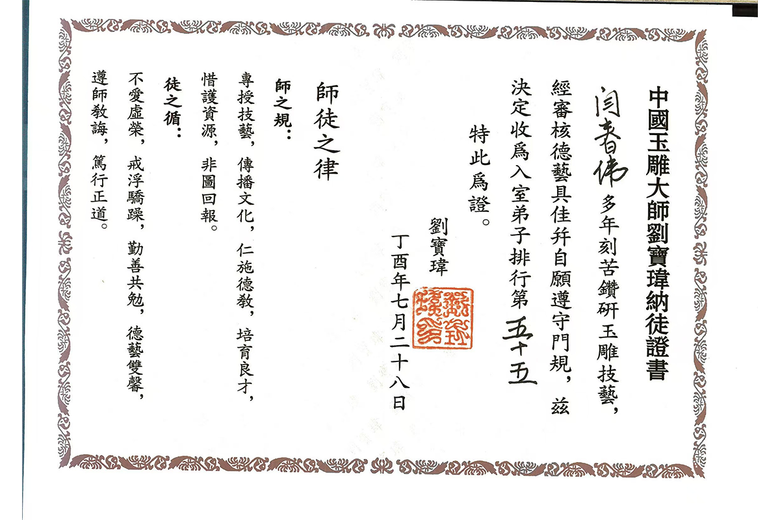 中國玉雕大師劉寶瑋納徒證書
闫春伟多年刻苦鑽研玉雕技藝，
經審核德藝具佳幷自願遵守門規，茲
決定收爲入室弟子排行第五十五
特此爲證。
劉寶瑋
丁酉年七月二十八日
師徒之律
師之規：
專授技藝，傳播文化，仁施德教，培育良才，
惜護資源，非圖回報。
徒之循：
不愛虛榮，戒浮驕躁，勤善共勉，德藝雙馨，
遵師教誨，篤行正道。